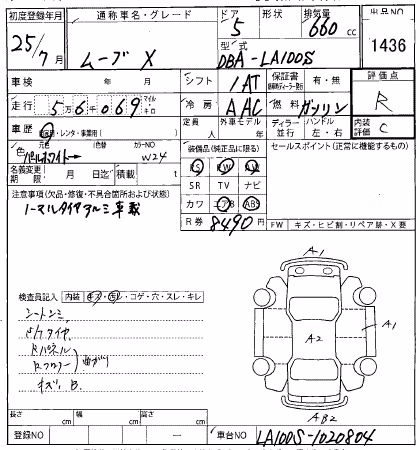 初度登録年月 通称車名・グレード ドア 形状 排気量 出品NO
25/7月 ムーブ X 5 660 cc 1436
型式
DBA-LA100S
車検 年 月 シフト IAT 保証書 有・無 評価点
R
走行 5万6千069 マイル キロ 冷房 AAC 燃料 ガソリン
車歴 自家用・レンタ・事業用( ) 定員 人 外車モデル 年 ディーラー 並行 ハンドル 左・右 内装評価 C
色 元色 パールホワイト→ 色替 カラーNO W24
装備品(純正品に限る) セールスポイント(正常に機能するもの)
名義変更期限 月 日迄 積載 t
PS PW
SR TV ナビ
カワ エアB ABS
R券 8490円
注意事項(欠品・修復・不具合箇所および状態)
ノーマルタイヤアルミ車載
FW キズ・ヒビ割・リペア跡・X要
検査員記入 内装 キズ・汚レ・コゲ・穴・スレ・キレ
シートシミ
Rパネル
Rフロアー
曲がり
キズ、B.
A1
A2
A1
AB2
長さ cm 幅 cm 高さ cm
登録NO 車台NO LA100S-1020804